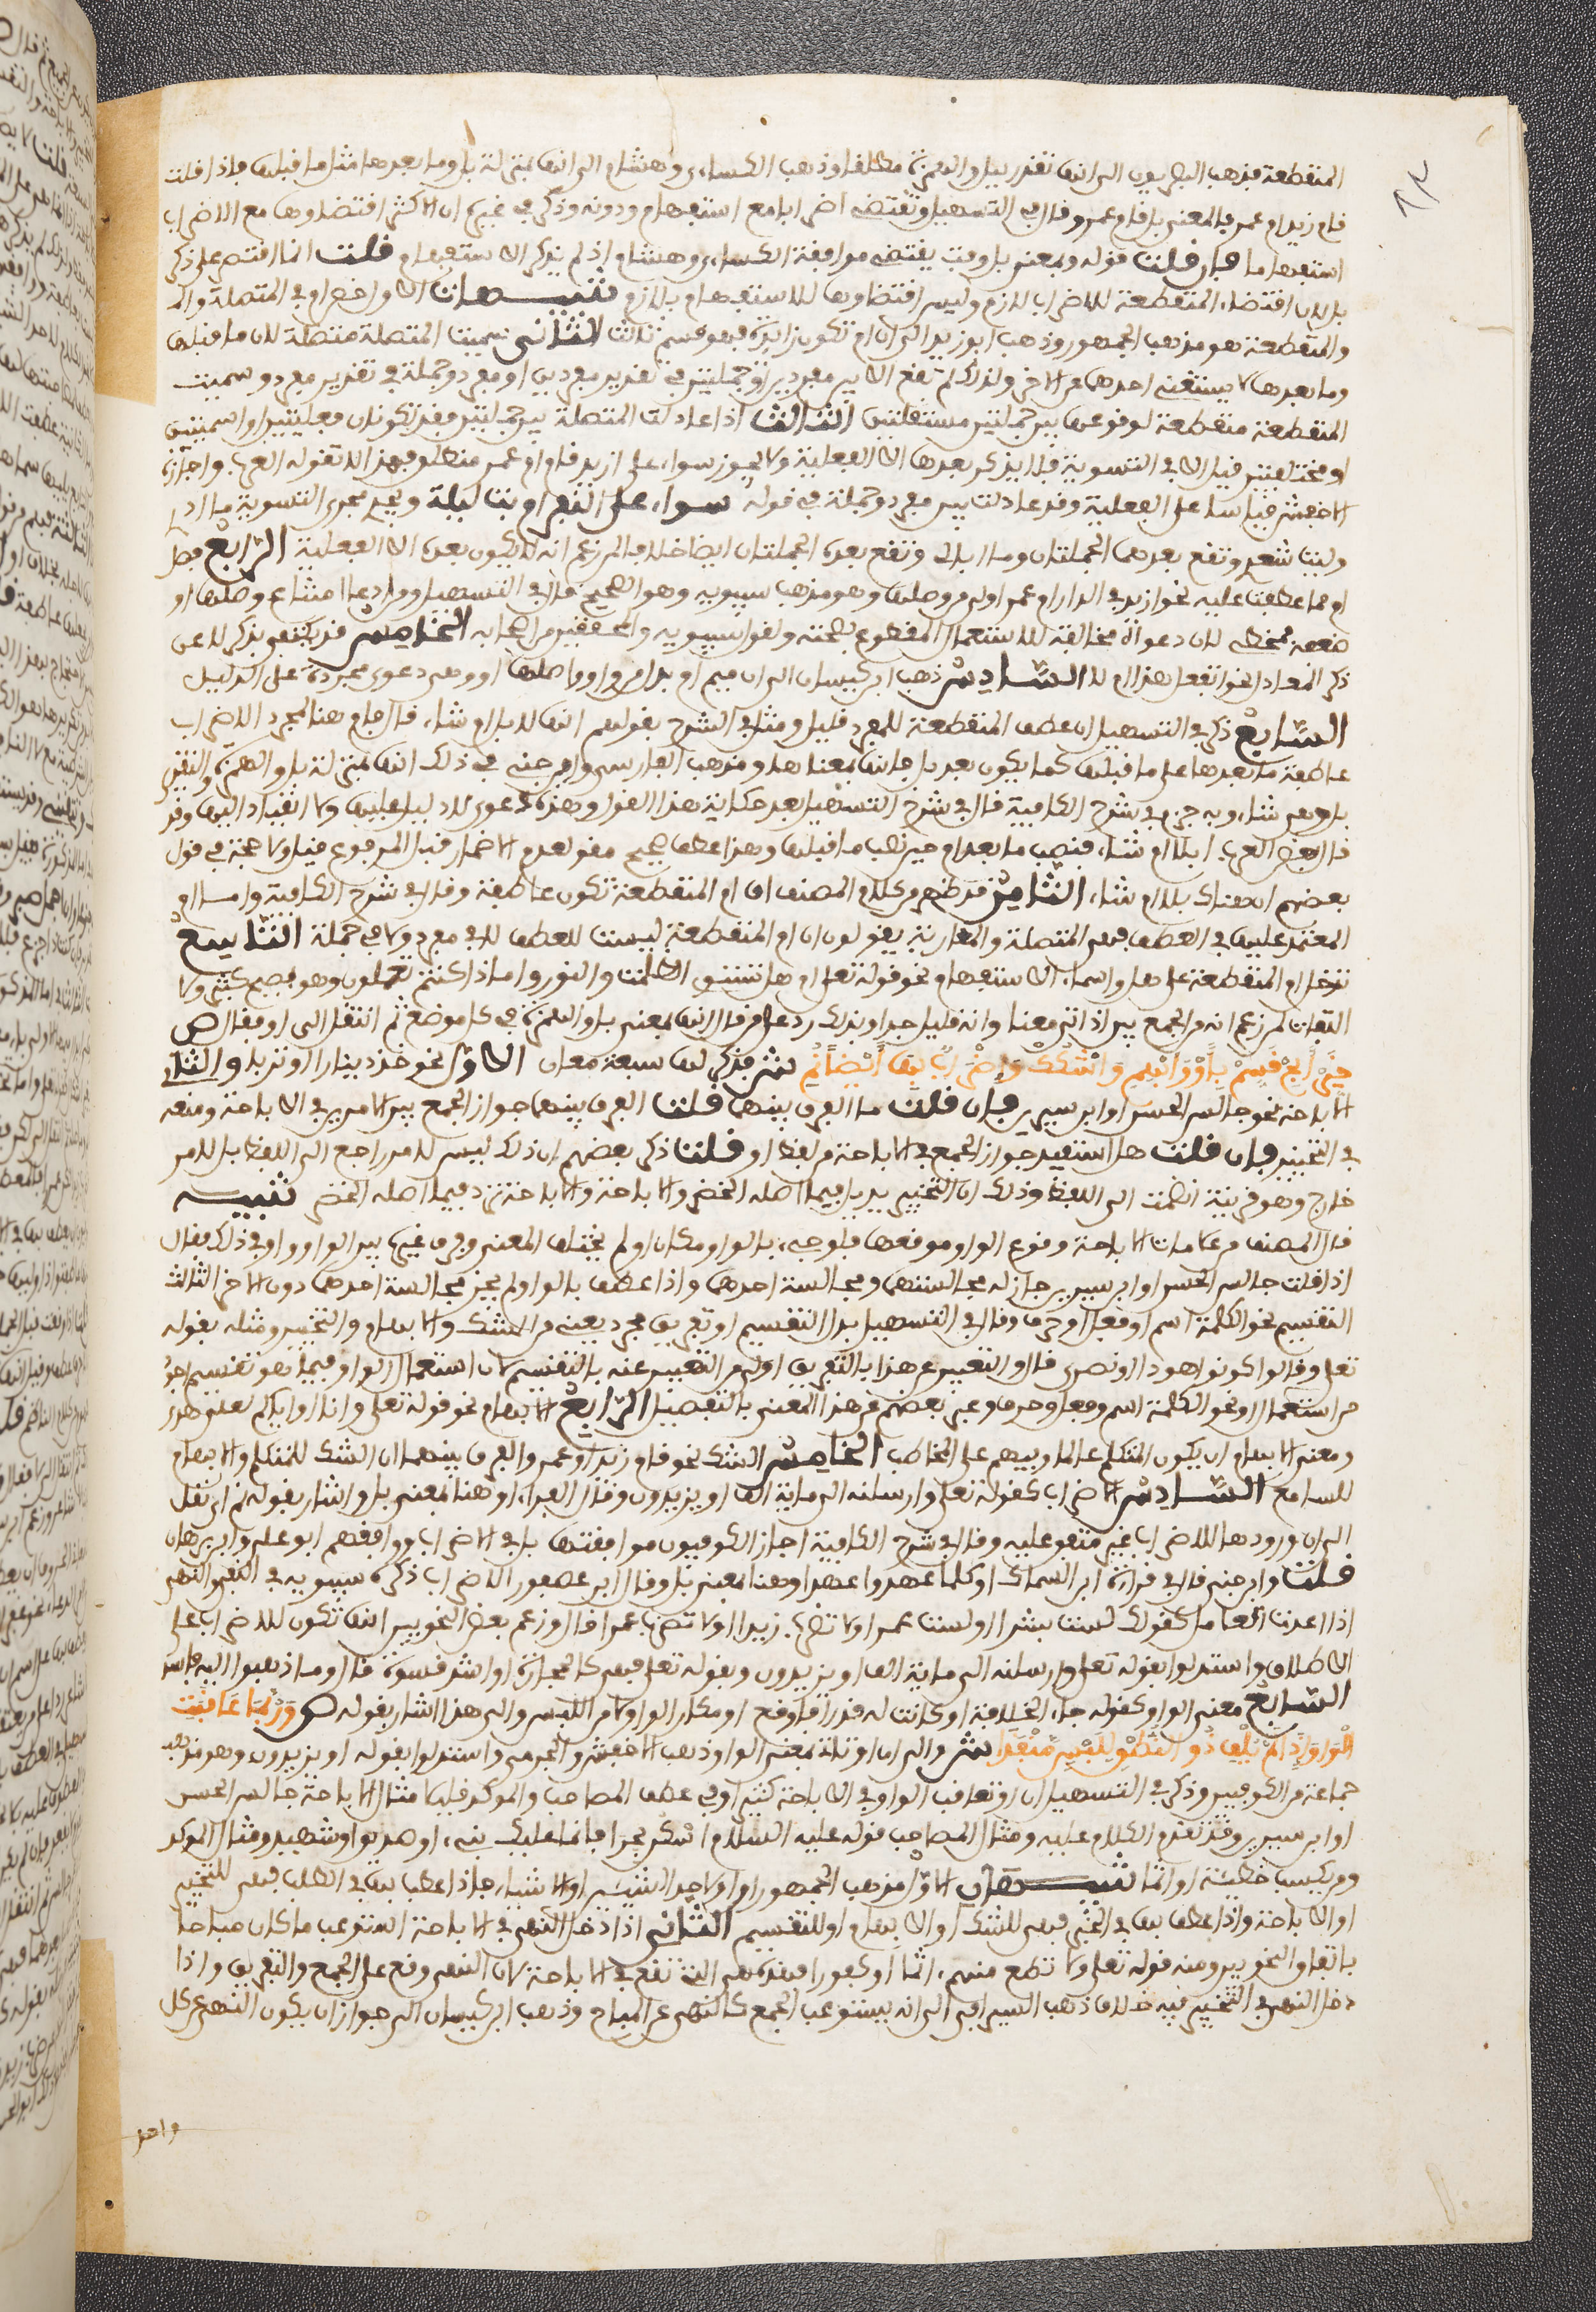 المنقطعة فذهب البصريون الى انها تقدر ببل والهمزة مطلقا وذهب الكساءى وهشام الى انها بمنزلة بل وما بعدها مثل ما قبلها فاذا قلت
قام زيد ام عمرو فالمعنى بل قام عمرو وقال في التسهيل وتقتضي اضرابا مع استفهام ودونه وذكر في غيره ان الاكثر اقتضاوها مع الاضراب
استفهاما فان قلت قوله وبمعنى بل وفت يقتضي موافقة الكساءى وهشام اذ لم يذكر الاستفهام قلت انما اقتصر على ذكر
بل لان اقتضاء المنقطعة للاضراب لازم وليس اقتضاوها للاستفهام بلازم تنبيهات الاول حصر ام في المتصلة
والمنقطعة هو مذهب الجمهور وذهب ابو زيد الى ان ام تكون زايدة فهو قسم ثالث الثاني سميت المتصلة متصلة لان ما قبلها
وما بعدها لا يستغنى احدهما عن الاخر ولذلك لم تقع الا بين مفردين او جملتين في تقدير مفردين او مفرد وجملة في تقدير مفرد وسميت
المنقطعة منقطعة لوقوعها بين جملتين مستقلتين الثالث اذا عادلت المتصلة بين جملتين فقد تكونان فعليتين او اسميتين
او مختلفتين قيل الا في التسوية فلا يذكر بعدها الا الفعلية ولا يجوز سواء علي ازيد قام ام عمرو منطلق فهذا لا تقوله العرب واجازه
الاخفش قياسا على الفعلية وقد عادلت بين مفرد وجملة في قوله سواء عليك النفر ام بت ليلة ويجري مجرى التسوية ما ادري
وليت شعري وتقع بعدهما الجملتان وما ابالي وتقع بعده الجملتان ايضا خلافا لمن زعم انه لا يكون بعده الا الفعلية الرابع فصل
ام مما عطفت عليه نحو ازيد في الدار ام عمرو اولى من وصلها وهو مذهب سيبويه وهو الصحيح قال في التسهيل ومن ادعى امتناع وصلها او
ضعفه فمخطئ لان دعواه مخالفة للاستعمال المقطوع بصحته ولقول سيبويه والمحققين من اصحابه الخامس قد يكتفى بذكر لا عن
ذكر المعادل نحو اتفعل هذا ام لا السادس ذهب ابن كيسان الى ان ميم ام بدل من واو واصلها او وهي دعوى مجردة على الدليل
السابع ذكر في التسهيل ان عطف المنقطعة للمفرد قليل ومثله في الشرح بقولهم انها لابل ام شاء قال فام هنا لمجرد الاضراب
عاطفة ما بعدها على ما قبلها كما يكون بعد بل فانها بمعناها ومذهب الفارسي وابن جني في ذلك انها بمنزلة بل والهمزة والتقدير
بل اهي شاء وبه جزم في شرح الكافية قال في شرح التسهيل بعد حكاية هذا القول وهذه دعوى لا دليل عليها ولا انقياد اليها وقد
قال بعض العرب ان لابلا ام شاء فنصب ما بعد ام حين نصب ما قبلها وهذا عطف صحيح مقو لعدم الاضمار قبل المرفوع قيل ولا حجة في قول
بعضهم ان هناك لابلا ام شاء الثامن قد ظهر من كلام المصنف ان ام المنقطعة تكون عاطفة وقال في شرح الكافية واما ام
المعتمد عليها في العطف فهي المتصلة والمغاربة يقولون ان ام المنقطعة ليست للعطف لا في مفرد ولا في جملة التاسع
تدخل ام المنقطعة على هل واسماء الاستفهام نحو قوله تعلى ام هل تستوي الظلمت والنور وام ماذا كنتم تعملون وهو فصيح كثير ولا
التفات لمن زعم انه من الجمع بين اداتي معنا وانه قليل جدا وبذلك رد على من قال انها بمعنى بل والهمزة في كل موضع ثم انتقل الى او فقال ص
خَيِّرْ أَبِحْ قَسِّمْ بِأَوْ وَأَبْهِمِ وَاشْكُكْ وَإِضْرَابٌ بِهَا أَيْضًا نُمِي ش قد ذكر لها سبعة معان الاول التخيير نحو خذ دينارا او ثوبا والثاني
الاباحة نحو جالس الحسن او ابن سيرين فان قلت ما الفرق بينهما قلت الفرق بينهما جواز الجمع بين الامرين في الاباحة ومنعه
في التخيير فان قلت هل استفيد جواز الجمع في الاباحة من لفظ او قلت ذكر بعضهم ان ذلك ليس لامر راجع الى اللفظ بل لامر
خارج وهو قرينة انضمت الى اللفظ وذلك ان التخيير يرد فيما اصله الحضر والاباحة ترد فيما اصله الحضر تنبيه
قال المصنف من علامات الاباحة وقوع الواو موقعها فلو جيء بالواو مكان او لم يختلف المعنى وفرق غيره بين الواو واو في ذلك فقال
اذا قلت جالس الحسن او ابن سيرين جاز له مجالستهما ومجالسة احدهما واذا عطف بالواو لم يجز مجالسة احدهما دون الاخر الثالث
التقسيم نحو الكلمة اسم او فعل او حرف وقال في التسهيل بدل التقسيم او تفريق مجرد يعني من الشك والابهام والتخيير ومثله بقوله
تعلى وقالوا كونوا هودا او نصرى قال والتعبير عن هذا بالتفريق اولى من التعبير عنه بالتقسيم لان استعمال الواو فيما هو تقسيم اجود
من استعمال او نحو الكلمة اسم وفعل وحرف وعبر بعضهم عن هذا المعنى بالتفصيل الرابع الابهام نحو قوله تعلى وانا او اياكم لعلى هدى
ومعنى الابهام ان يكون المتكلم عالما ويبهم على المخاطب الخامس الشك نحو قام زيد او عمرو والفرق بينهما ان الشك للمتكلم والابهام
للسامع السادس الاضراب كقوله تعلى وارسلنه الى ماية الف او يزيدون وقال الفراء او هنا بمعنى بل واشار بقوله نمي اي نقل
الى ان ورودها للاضراب غير متفق عليه وقال في شرح الكافية اجاز الكوفيون موافقتها بل في الاضراب ووافقهم ابو علي وابن برهان
قلت وابن جني قال في قراءة ابي السماك او كلما عهدوا عهدا او هنا بمعنى بل وقال ابن عصفور الاضراب ذكره سيبويه في النفي والنهي
اذا اعدت العامل كقولك لست بشرا او لست عمرا ولا تضرب زيدا او لا تضرب عمرا قال وزعم بعض النحويين انها تكون للاضراب على
الاطلاق واستدلوا بقوله تعلى وارسلنه الى ماية الف او يزيدون وبقوله تعلى فهي كالحجارة او اشد قسوة قال وما ذهبوا اليه فاسد
السابع معنى الواو كقوله جاء الخلافة او كانت له قدرا فاوقع او مكان الواو لامن اللبس والى هذا اشار بقوله ص وَرُبَّمَا عَاقَبَتِ
الْوَاوَ إِذَا لَمْ يُلْفِ ذُو النُّطْقِ لِلَبْسٍ مَنْفَذَا ش والى ان او تاتي بمعنى الواو ذهب الاخفش والجرمي واستدلوا بقوله او يزيدون وهو مذهب
جماعة من الكوفيين وذكر في التسهيل ان او تعاقب الواو في الاباحة كثيرا وفي عطف المصاحب والموكد قليلا مثال الاباحة جالس الحسن
او ابن سيرين وقد تقدم الكلام عليه ومثال المصاحب قوله عليه السلام اسكن حرا فانما عليك نبيء او صديق او شهيد ومثال الموكد
ومن يكسب خطيئة او اثما تنبيهان الاول مذهب الجمهور ان او لاحد الشيئين او الاشياء فاذا عطف بها في الطلب فهي للتخيير
او الاباحة واذا عطف بها في الخبر فهي للشك او الابهام او للتقسيم الثاني اذا دخل النهي في الاباحة استوعب ما كان مباحا
باتفاق النحويين ومنه قوله تعلى ولا تطع منهم اثما او كفورا فهذه هي التي تقع في الاباحة لان النهي وقع على الجمع والتفريق واذا
دخل النهي في التخيير ففيه خلاف ذهب السيرافي الى انه يستوعب الجمع كالنهي عن المباح وذهب ابن كيسان الى جواز ان يكون النهي عن كل
واحد